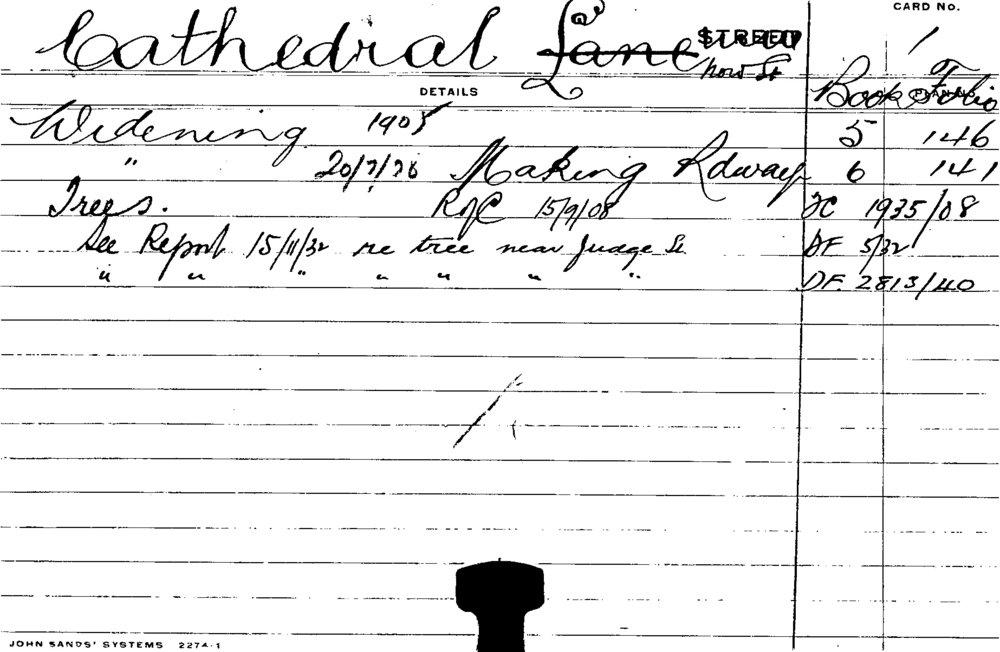 CARD No.
Cathedral Lane STREET 1
now St
DETAILS Book Folio
Widening 1905 5 146
" 20/7/26 Making Rdway 6 141
Trees. R of C 15/9/08 TC 1935/08
See Report 15/11/32 re tree near Judge St DF 5/32
" " " " " " " DF. 2813/40
JOHN SANDS' SYSTEMS 2274-1